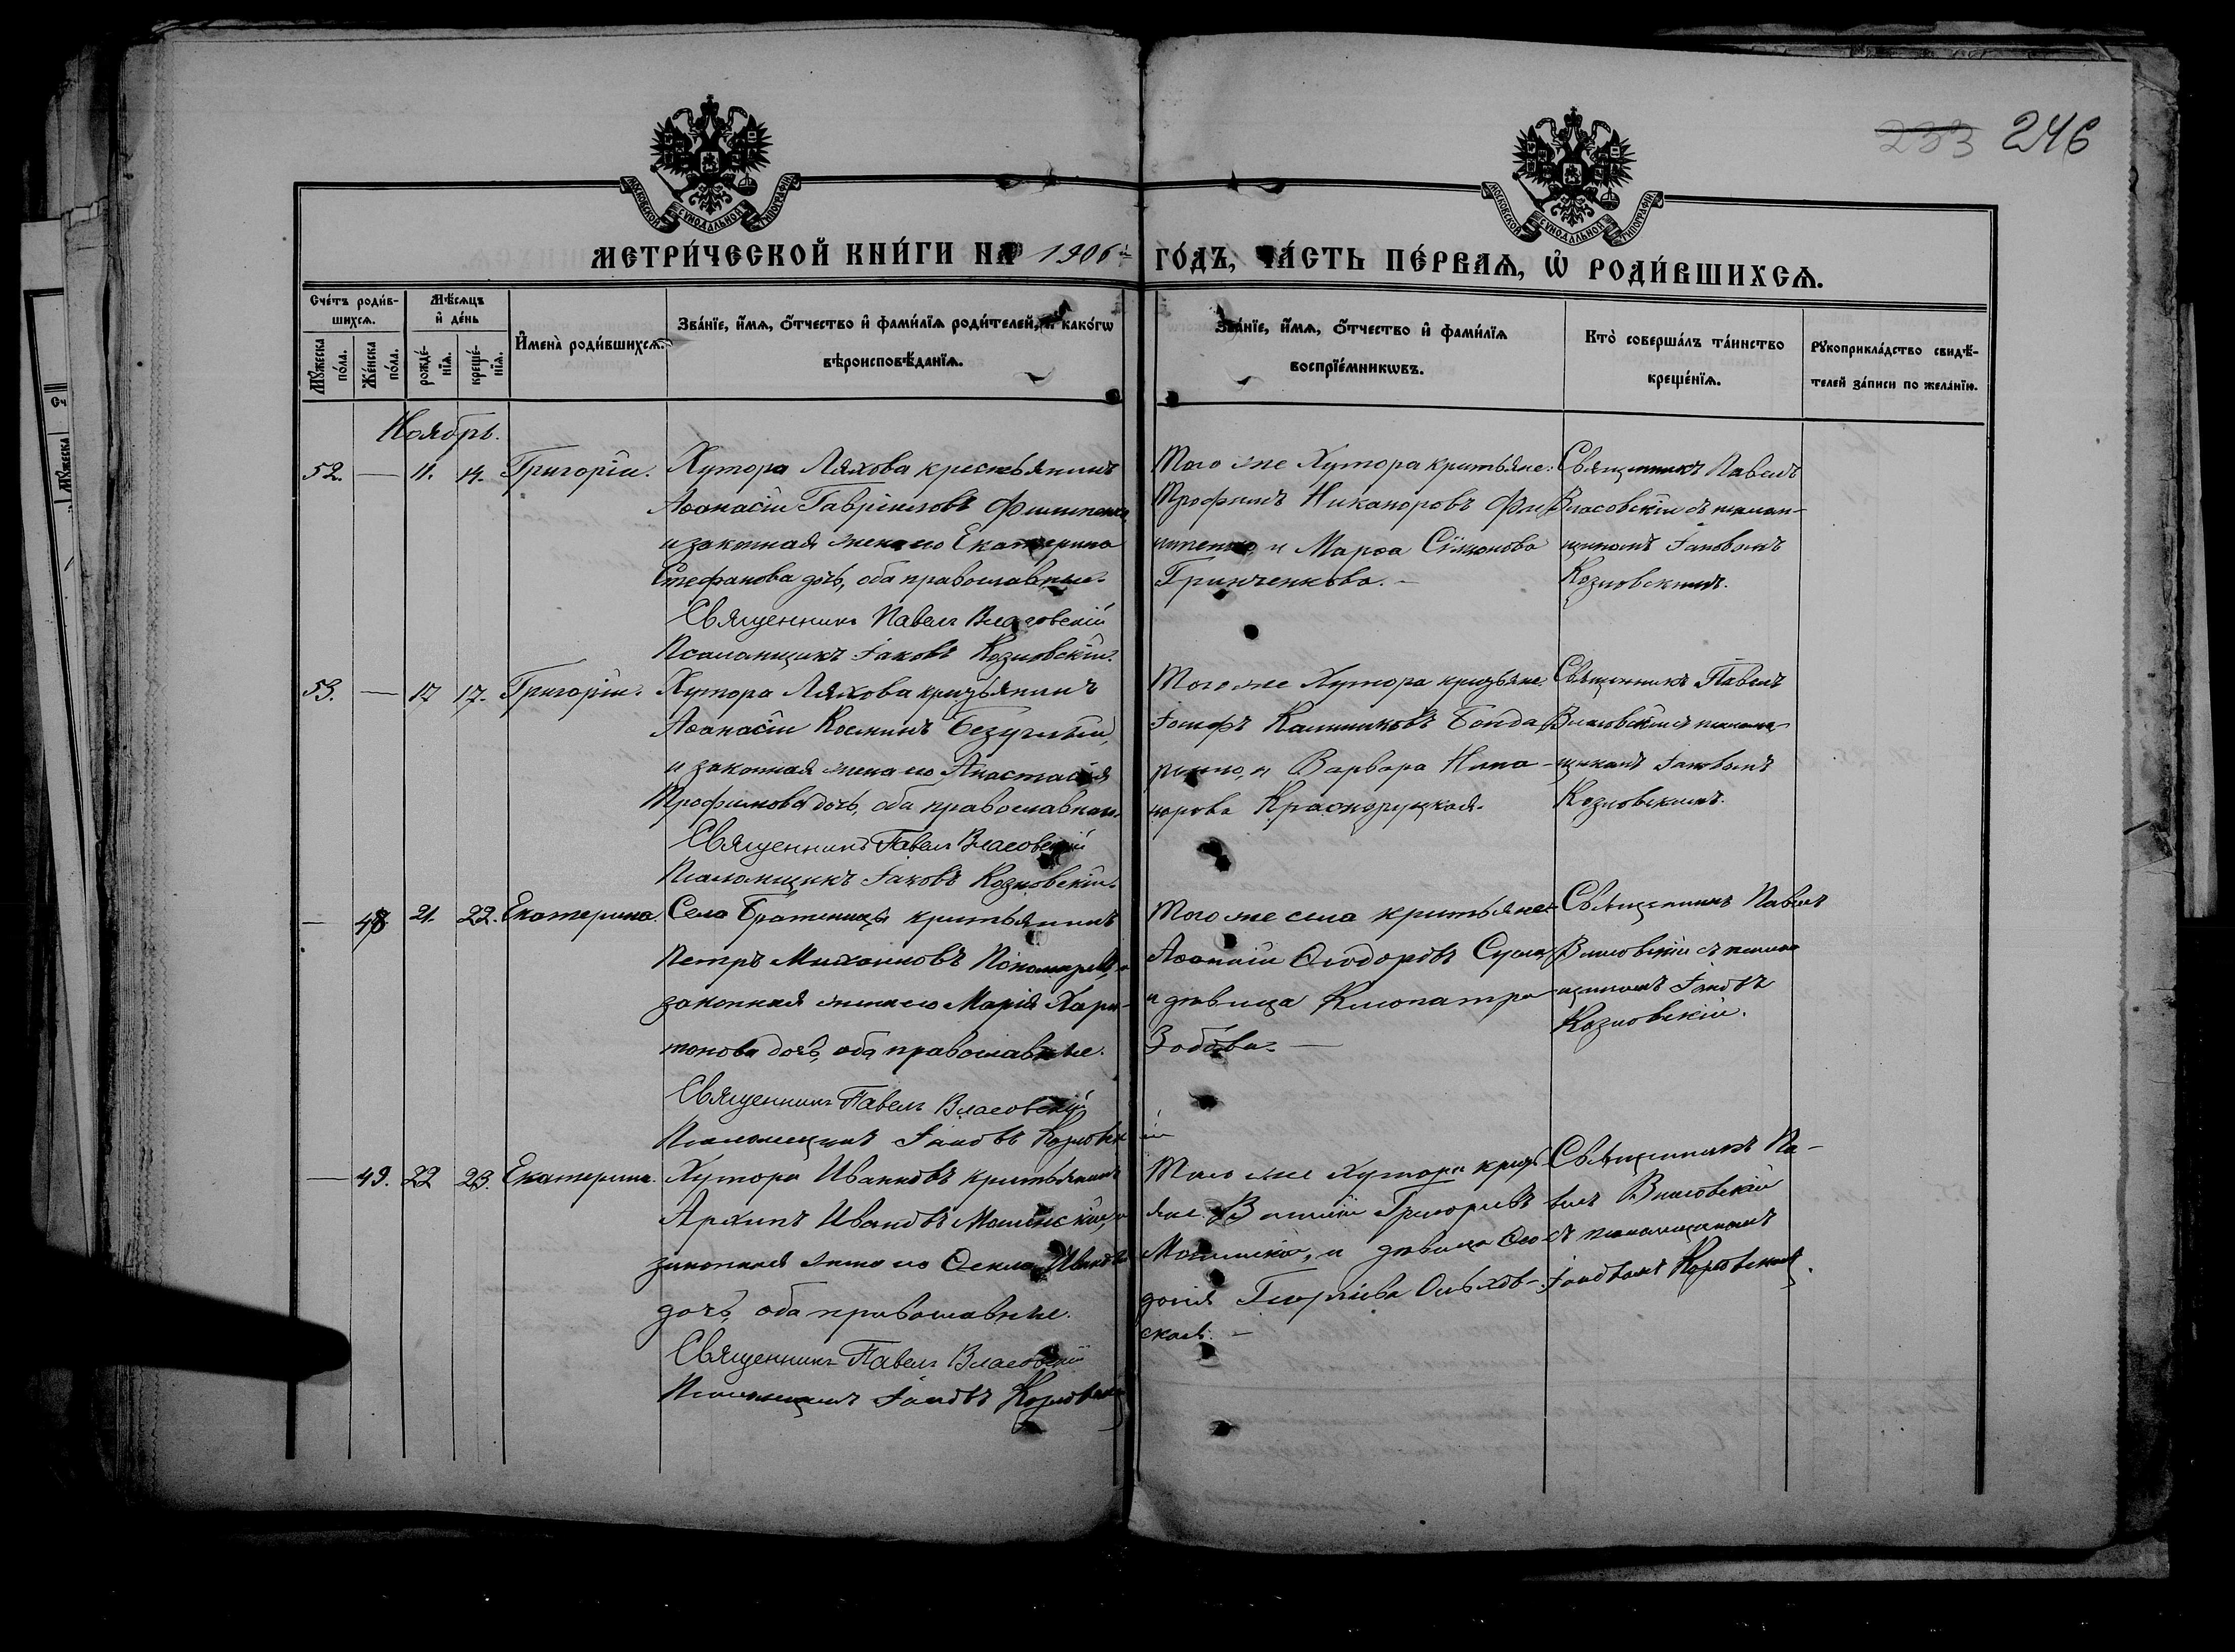 233 246
МОСКОВСКОЙ СѴНОДАЛЬНОЙ ТИПОГРАФІИ
МОСКОВСКОЙ СѴНОДАЛЬНОЙ ТИПОГРАФІИ
МЕТРИ́ЧЕСКОЙ КНИ́ГИ НА 1906й ГО́ДЪ, ЧА́СТЬ ПЕ́РВАѦ, Ѡ҆ РОДИ́ВШИХСѦ.
Сче́тъ роди́в-
шихсѧ.
Мꙋ́жеска по́ла.
Же́нска по́ла.
Мѣ́сѧцъ
и҆ де́нь
рожде́-
нїѧ.
креще́-
нїѧ.
И҆мена̀ роди́вшихсѧ.
Зва́нїе, и҆́мѧ, ѻ҆́тчество и҆ фами́лїѧ роди́телей, и҆ како́гѡ
вѣроисповѣ́данїѧ.
Зва́нїе, и҆́мѧ, ѻ҆́тчество и҆ фами́лїѧ
воспрїе́мникѡвъ.
Кто̀ соверша́лъ та́инство
креще́нїѧ.
Рꙋкоприкла́дство свидѣ́-
телей за́писи по жела́нїю.
Ноябрь.
52. — 11. 14. Григорій.
Хутора Ляхова крестьянинъ
Аѳанасій Гавріиловъ Филипенко
и законная жена его Екатерина
Стефанова дочь, оба православные.
Священникъ Павелъ Власовскій
Псаломщикъ Іаковъ Козловскій.
Того же Хутора крестьяне:
Трофимъ Никаноровъ Фи-
липенко, и Марѳа Сімонова
Гринченкова. —
Священникъ Павелъ
Власовскій съ псалом-
щикомъ Іаковомъ
Козловскимъ.
53. — 12 17. Григорій.
Хутора Ляхова крестьянинъ
Аѳанасій Косминъ Безуглый,
и законная жена его Анастасія
Трофимова дочь, оба православные.
Священникъ Павелъ Власовскій
Псаломщикъ Іаковъ Козловскій.
Того же Хутора крестьяне:
Іосифъ Калиниковъ Бонда-
ренко, и Варвара Ника-
норова Красноруцкая.
Священникъ Павелъ
Власовскій съ псалом-
щикомъ Іаковомъ
Козловскимъ.
— 48. 21. 22. Екатерина.
Села Братеницы крестьянинъ
Петръ Михаиловъ Пономаревъ, и
законная жена его Марія Хари-
тонова дочь, оба православные.
Священникъ Павелъ Власовскій
Псаломщикъ Іаковъ Козловскій
Того же села крестьяне:
Аѳанасій Ѳеодоровъ
и дѣвица Клеопатра
Зобова. —
Священникъ Павелъ
Власовскій съ псалом-
щикомъ Іаковъ
Козловскій.
— 49. 22 23. Екатерина.
Хутора Ивановъ крестьянинъ
Архипъ Ивановъ и
законная жена его Ѳекла Иванова
дочь, оба православные.
Священникъ Павелъ Власовскій
Псаломщикъ Іаковъ Козловскій
Того же Хутора кресть-
яне: Василій Григорьевъ
и дѣвица Ѳео-
досія Георгіева Ольхов-
ская. —
Священникъ Па-
велъ Власовскій
съ псаломщикомъ
Іаковомъ Козловскимъ.